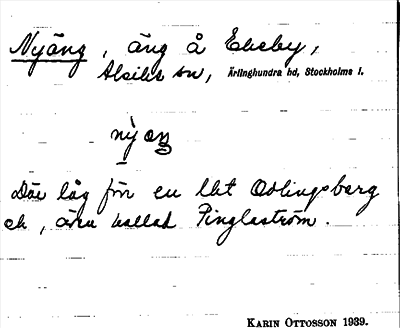 Nyäng, äng å Ekeby,
Alsike sn, Ärlinghundra hd, Stockholms l.
Där låg för en lht Odlingsberg
ck, även kallad Pinglaström.
KARIN OTTOSSON 1939.